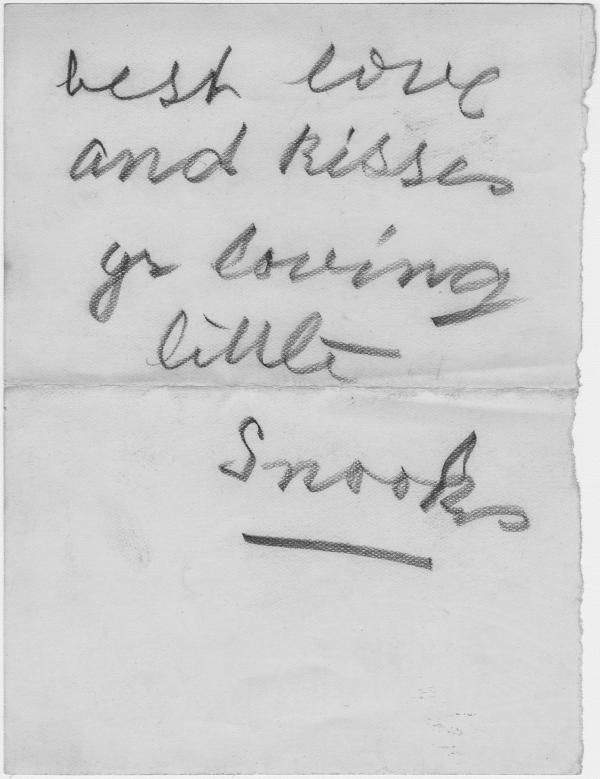 best love
and kisses
yr loving
little
Snooks